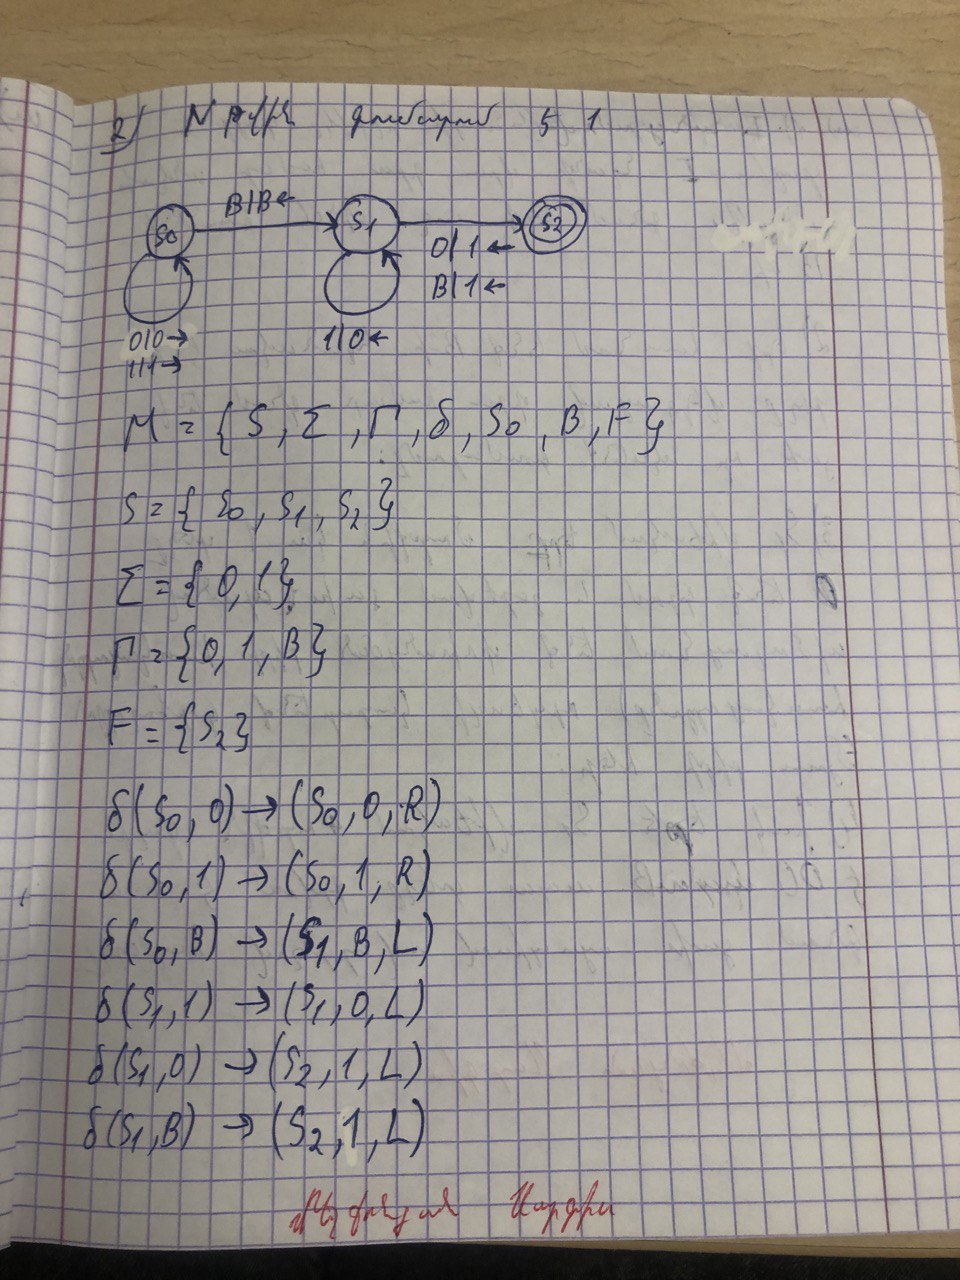 2) N 1
S0 B|B← S1 S2
0|1←
B|1←
0|0→ 1|0←
1|1→
M = {S, Σ, Γ, δ, S0, B, F}
S = {S0, S1, S2}
Σ = {0, 1}
Γ = {0, 1, B}
F = {S2}
δ(S0, 0) → (S0, 0, R)
δ(S0, 1) → (S0, 1, R)
δ(S0, B) → (S1, B, L)
δ(S1, 1) → (S1, 0, L)
δ(S1, 0) → (S2, 1, L)
δ(S1, B) → (S2, 1, L)